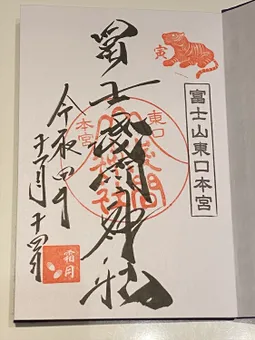 寅
富士山東口本宮
冨士浅間神社
東口
本宮
浅間神社
令和四年
十一月十四日
霜月